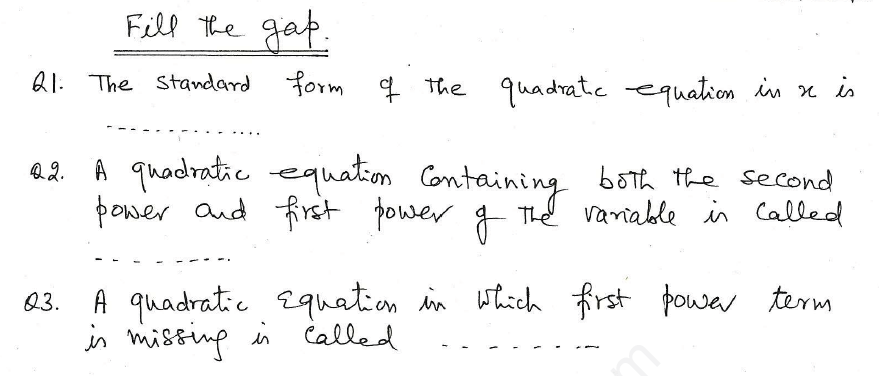 Fill the gap.
Q1. The standard form of the quadratc equation in x is
..............
Q2. A quadratic equation Containing both the second
power and first power of the variable is Called
..........
Q3. A quadratic Equation in which first power term
is missing is Called ..........